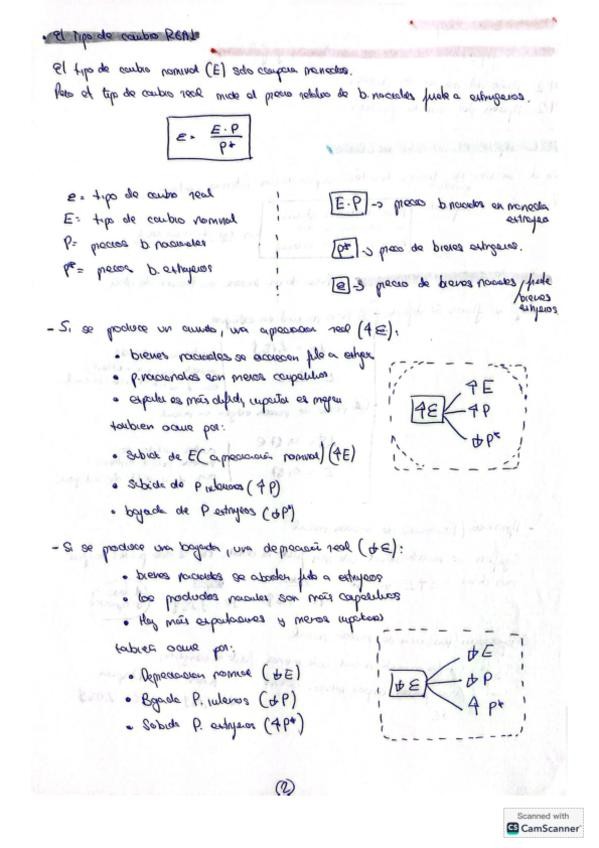 • El tipo de cambio REAL
El tipo de cambio nominal (E) solo compara monedas.
Pero el tipo de cambio real mide el precio relativo de b. nacionales frente a extranjeros.
ε = E · P / P*
ε = tipo de cambio real
E = tipo de cambio nominal
P = precios b. nacionales
P* = precios b. extranjeros
E · P → precio b. nacionales en moneda extranjera
P* → precio de bienes extranjeros.
e → precio de bienes nacionales frente bienes extranjeros
- Si se produce un aumento, una apreciación real (↑ε):
• bienes nacionales se encarecen frente a extranj
• p. nacionales son menos competitivos
• exportar es más difícil, importar es mejor
también ocurre por:
• Subida de E (apreciación nominal) (↑E)
• Subida de P internos (↑P)
• bajada de P extranjeros (↓P*)
↑ε
↑E
↑P
↓P*
- Si se produce una bajada, una depreciación real (↓ε):
• bienes nacionales se abaratan frente a extranjeros
• Los productos nacionales son más competitivos
• Hay más exportaciones y menos importaciones
también ocurre por:
• Depreciación nominal (↓E)
• Bajada P. internos (↓P)
• Subida P. extranjeros (↑P*)
↓ε
↓E
↓P
↑P*
(2)
Scanned with
CS CamScanner